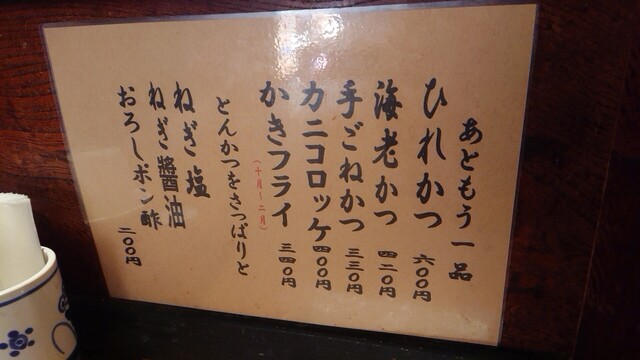 あともう一品
ひれかつ 六〇〇円
海老かつ 四二〇円
手ごねかつ 三三〇円
カニコロッケ 四〇〇円
かきフライ 三四〇円
(十月〜二月)
とんかつをさっぱりと
ねぎ塩
ねぎ醤油
おろしポン酢 二〇〇円